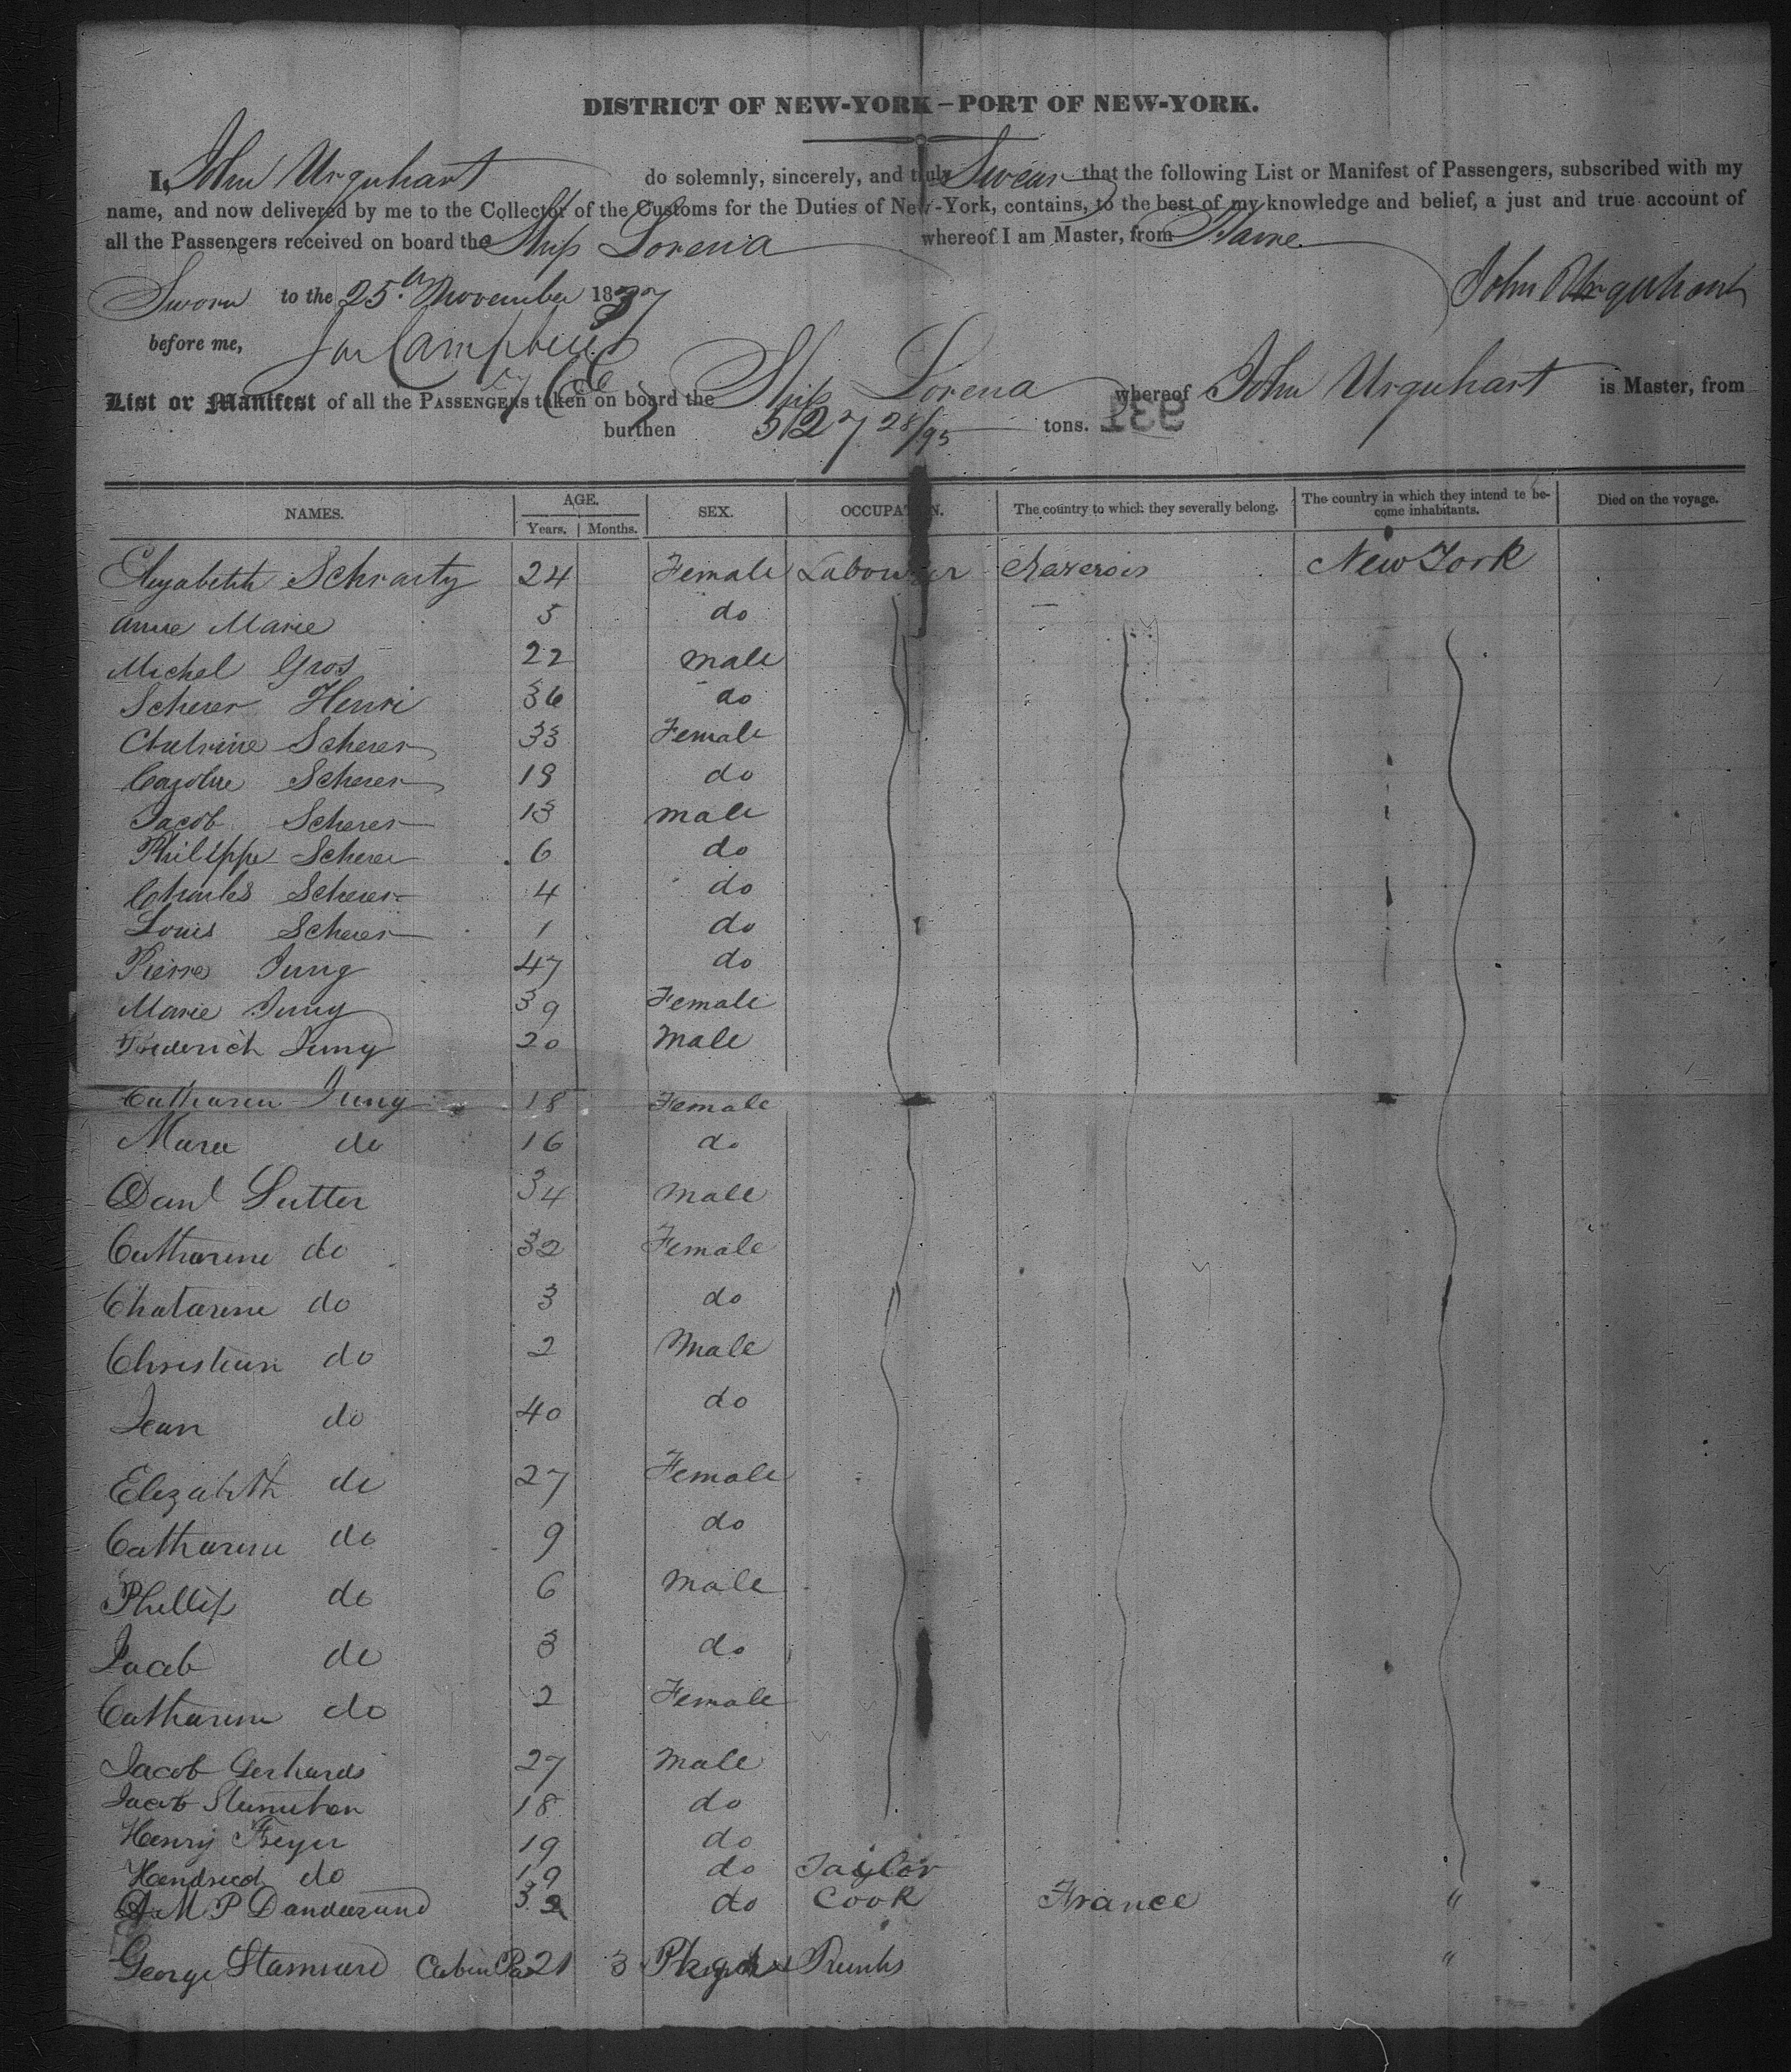 DISTRICT OF NEW-YORK—PORT OF NEW-YORK.
I, John Urquhart do solemnly, sincerely, and truly Swear that the following List or Manifest of Passengers, subscribed with my
name, and now delivered by me to the Collector of the Customs for the Duties of New-York, contains, to the best of my knowledge and belief, a just and true account of
all the Passengers received on board the Ship Lorena whereof I am Master, from Havre.
Sworn to the 25th November 1837 John Urquhart
before me, Campbell
List or Manifest of all the PASSENGERS taken on board the Ship Lorena whereof John Urquhart is Master, from
burthen 527 28/95 tons. 931
NAMES. AGE. SEX. OCCUPATION. The country to which they severally belong. The country in which they intend te become inhabitants. Died on the voyage.
Years. Months.
Elizabeth Schvarty 24 Female Labourer New York
Anne Marie 5 do
Michel Gros 22 male
Scherer Henri 36 do
Scherer 33 Female
Scherer 19 do
Jacob Scherer 13 male
Philippe Scherer 6 do
Charles Scherer 4 do
Louis Scherer 1 do
Pierre Jung 47 do
Marie Jung 39 Female
Frederich Jung 20 Male
Catharen Jung 18 Female
Mara do 16 do
Danl Sutter 34 male
Catharine do 32 Female
Chatarine do 3 do
Christian do 2 Male
Jean do 40 do
Elezabeth do 27 Female
Catharine do 9 do
Phillip do 6 male
Jacob do 3 do
Catharine do 2 Female
Jacob Gerhards 27 male
Jacob 18 do
Henry Freyer 19 do
do 19 do Taylor
A M P 32 do Cook France "
George Stannard Cabin Pa 21 3 Trunks "